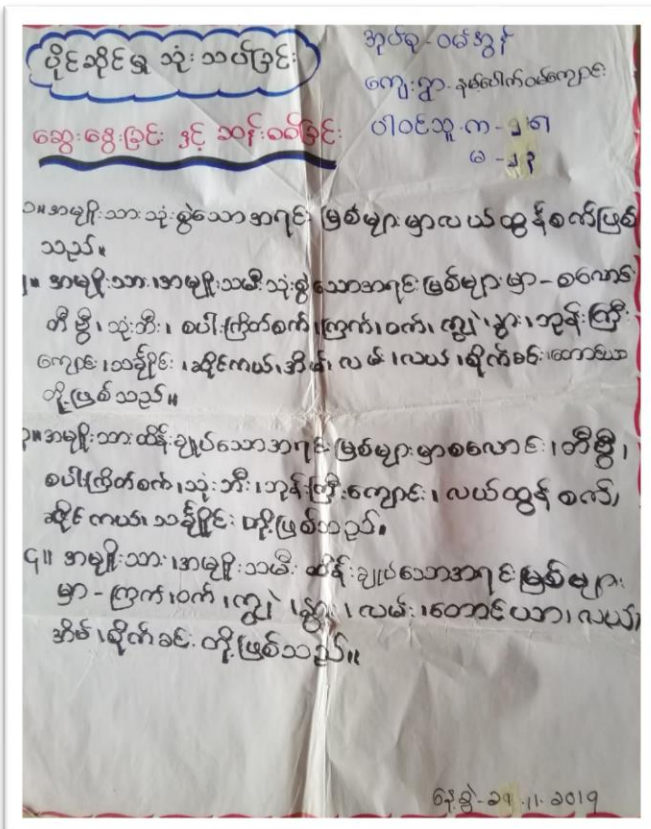 ပိုင်ဆိုင်မှု သုံးသပ်ခြင်း
ဆွေးနွေးခြင်း နှင့် ဆန်းစစ်ခြင်း
အုပ်စု - ဝမ်အွန်
ကျေးရွာ - နမ့်ပေါက်ဝမ်ကျောင်း
ပါဝင်သူ - က - ၂၅
မ - ၂၃
၁။ အမျိုးသားသုံးစွဲသောအရင်းမြစ်များမှာလယ်ထွန်စက်ဖြစ်
သည်။
၂။ အမျိုးသား၊အမျိုးသမီးသုံးစွဲသောအရင်းမြစ်များမှာ - စလောင်း
တီဗွီ၊ သုံးဘီး၊ စပါးကြိတ်စက်၊ကြက်၊ဝက်၊ ကျွဲ၊နွား၊ဘုန်းကြီး
ကျောင်း၊သင်္ချိုင်း၊ဆိုင်ကယ်၊အိမ်၊ လမ်း၊လယ်၊စိုက်ခင်း၊တောင်ယာ
တို့ဖြစ်သည်။
၃။အမျိုးသားထိန်းချုပ်သောအရင်းမြစ်များမှာစလောင်း၊တီဗွီ၊
စပါးကြိတ်စက်၊သုံးဘီး၊ဘုန်းကြီးကျောင်း၊ လယ်ထွန်စက်၊
ဆိုင်ကယ်၊ သင်္ချိုင်း တို့ဖြစ်သည်။
၄။ အမျိုးသား၊အမျိုးသမီး ထိန်းချုပ်သောအရင်းမြစ်များ
မှာ - ကြက်၊ဝက်၊ကျွဲ၊နွား၊ လမ်း၊တောင်ယာ၊ လယ်၊
အိမ်၊စိုက်ခင်း တို့ဖြစ်သည်။
နေ့စွဲ - .11.2019